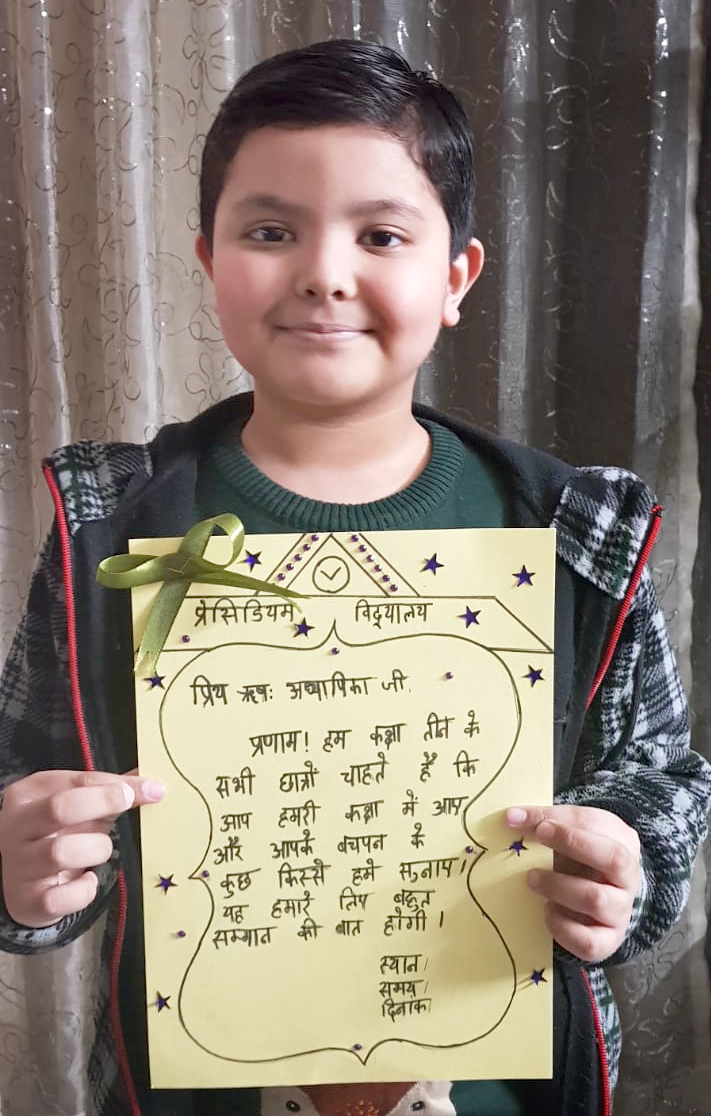 प्रेसिडियम विद्यालय
प्रिय अध्यापिका जी,
प्रणाम! हम कक्षा तीन के
सभी छात्रों चाहते है कि
आप हमरी कक्षा में आए
और आपके बचपन के
कुछ किस्से हमे सुनाए।
यह हमारे लिए बहुत
सम्मान की बात होगी।
स्थान/
समय/
दिनांक/